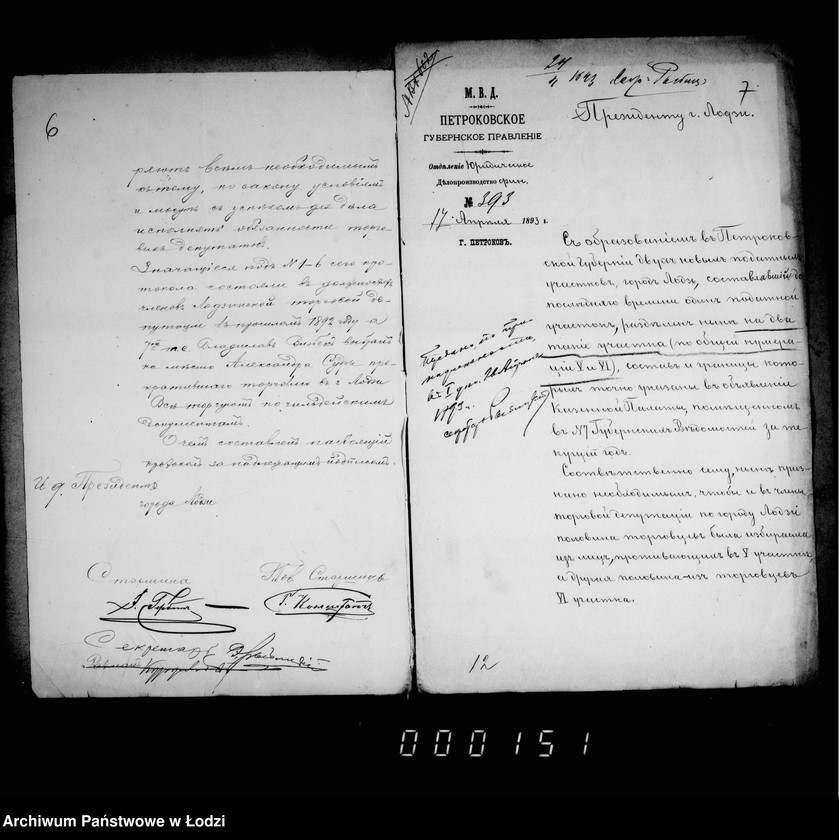 6
ряютъ всѣмъ необходимымъ
къ тому, по закону условіямъ
и могутъ съ успѣхомъ для дѣла
исполнять обязанности торго-
выхъ депутатовъ.
Значащіеся подъ № 1-6 сего про-
токола состояли въ должностяхъ
членовъ Лодзинской торговой де-
путаціи въ прошломъ 1892 году а
7й т.е. Владиславъ выбранъ
на мѣсто Александра пре-
кратившаго торговлю въ г. Лодзи
Всѣ торгуютъ по гильдейскимъ
документамъ.
О чемъ составленъ настоящій
протоколъ за надлежащимъ подписомъ.
И. д. Президента
города Лодзи
Старшина
Тов. Старшины
Секретарь
24/4 1693
7
М. В. Д.
ПЕТРОКОВСКОЕ
ГУБЕРНСКОЕ ПРАВЛЕНІЕ
Отдѣленіе Юридичное
Дѣлопроизводство фин.
№ 393
17 Апрѣля 1893 г.
Г. ПЕТРОКОВЪ.
Президенту г. Лодзи.
Съ образованіемъ въ Петроков-
ской Губерніи двухъ новыхъ податныхъ
участковъ, городъ Лодзь, составлявшій до
послѣдняго времени одинъ податной
участокъ, раздѣленъ нынѣ на два
такіе участка (по общей нумера-
ціи V и VI), составъ и границы кото-
рыхъ точно указаны въ объявленіи
Казенной Палаты, помѣщенномъ
въ № 7 Губернскихъ Вѣдомостей за те-
кущій годъ.
Соотвѣтственно сему, нынѣ приз-
нано необходимымъ, чтобы и въ члены
торговой депутаціи по городу Лодзи
половина торговцевъ была избираема
изъ лицъ, проживающихъ въ V участкѣ
а другая половина изъ торговцевъ
VI участка.
12
000151
Archiwum Państwowe w Łodzi